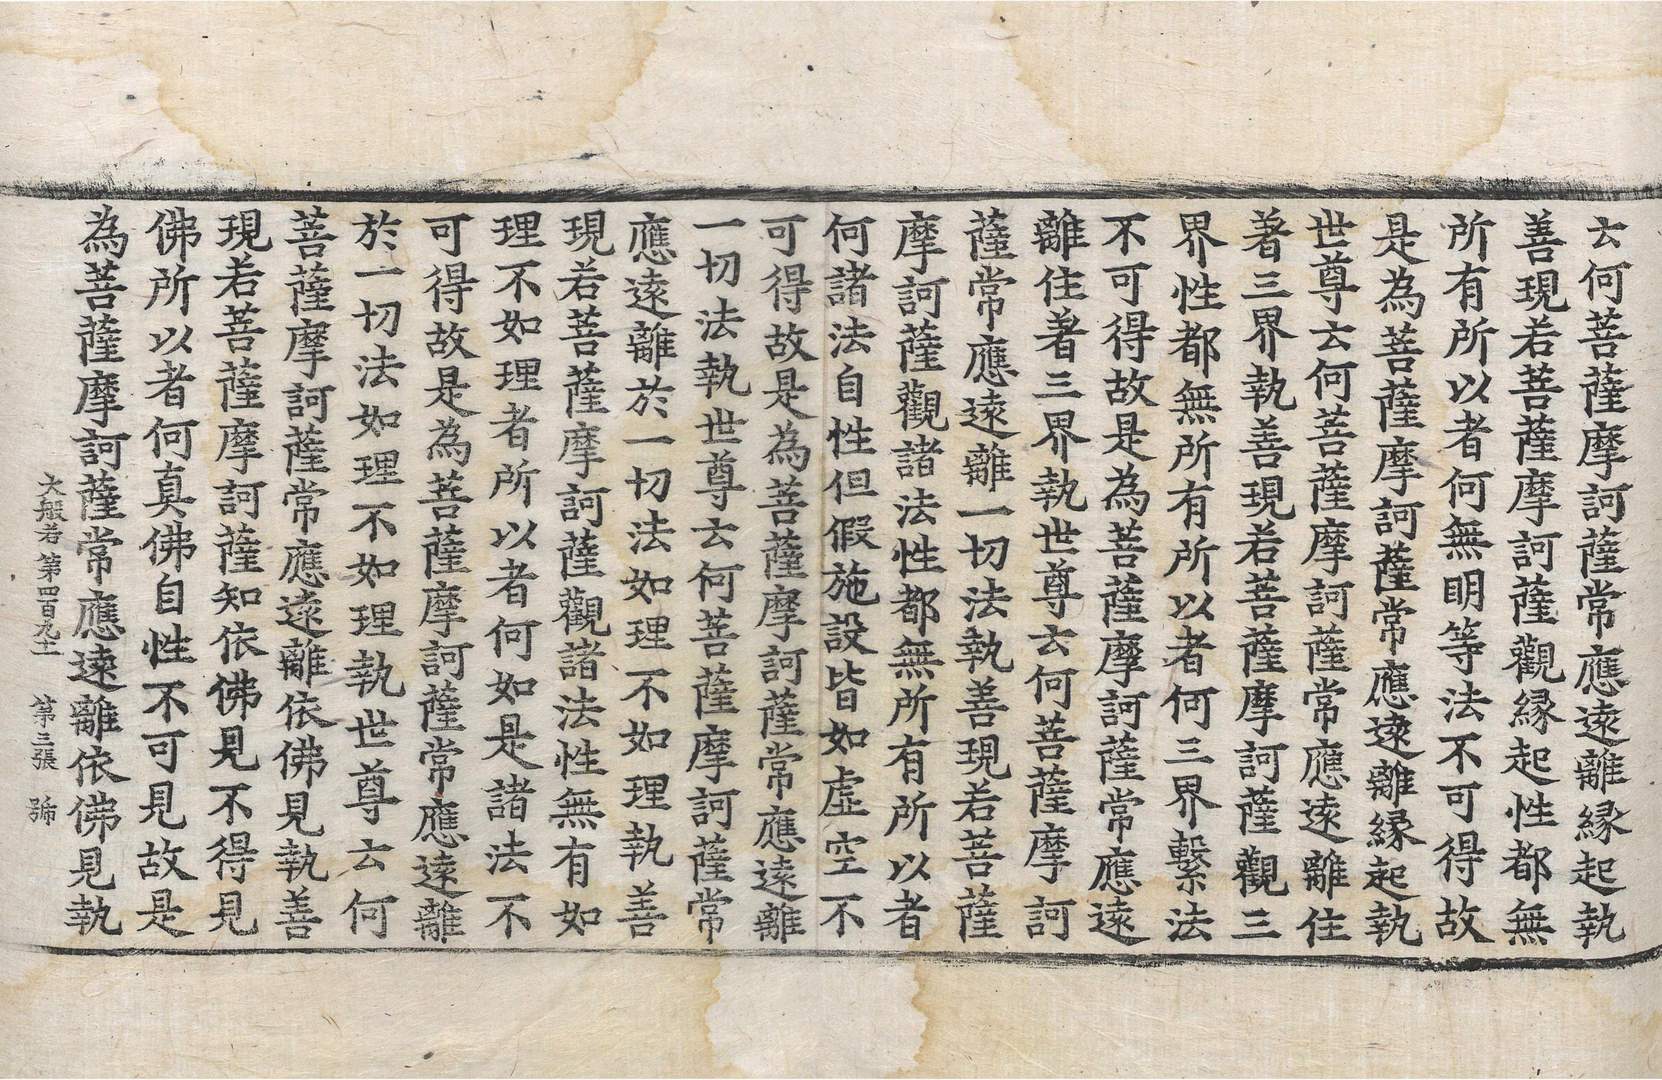 云何菩薩摩訶薩常應遠離緣起執
善現若菩薩摩訶薩觀緣起性都無
所有所以者何無明等法不可得故
是為菩薩摩訶薩常應遠離緣起執
世尊云何菩薩摩訶薩常應遠離住
著三界執善現若菩薩摩訶薩觀三
界性都無所有所以者何三界繫法
不可得故是為菩薩摩訶薩常應遠
離住著三界執世尊云何菩薩摩訶
薩常應遠離一切法執善現若菩薩
摩訶薩觀諸法性都無所有所以者
何諸法自性但假施設皆如虛空不
可得故是為菩薩摩訶薩常應遠離
一切法執世尊云何菩薩摩訶薩常
應遠離於一切法如理不如理執善
現若菩薩摩訶薩觀諸法性無有如
理不如理者所以者何如是諸法不
可得故是為菩薩摩訶薩常應遠離
於一切法如理不如理執世尊云何
菩薩摩訶薩常應遠離依佛見執善
現若菩薩摩訶薩知依佛見不得見
佛所以者何真佛自性不可見故是
為菩薩摩訶薩常應遠離依佛見執
大般若第四百九十一 第三張 號